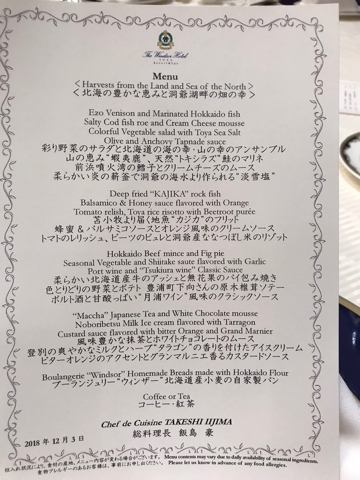 The Windsor Hotel
TOYA
Resort & Spa
Menu
<Harvests from the Land and Sea of the North>
<北海の豊かな恵みと洞爺湖畔の畑の幸>
Ezo Venison and Marinated Hokkaido fish
Salty Cod fish roe and Cream Cheese mousse
Colorful Vegetable salad with Toya Sea Salt
Olive and Anchovy Tapnade sauce
彩り野菜のサラダと北海道の海の幸・山の幸のアンサンブル
山の恵み"蝦夷鹿"、天然"トキシラズ"鮭のマリネ
前浜噴火湾の鱈子とクリームチーズのムース
柔らかい炎の薪釜で洞爺の海水より作られる"淡雪塩"
Deep fried "KAJIKA" rock fish
Balsamico & Honey sauce flavored with Orange
Tomato relish, Toya rice risotto with Beetroot purée
苫小牧より届く地魚"カジカ"のフリット
蜂蜜&バルサミコソースとオレンジ風味のクリームソース
トマトのレリッシュ、ビーツのピュレと洞爺産ななつぼし米のリゾット
Hokkaido Beef mince and Fig pie
Seasonal Vegetable and Shiitake sauce flavored with Garlic
Port wine and "Tsukiura wine" Classic Sauce
柔らかい北海道産牛のアッシェと無花果のパイ包み焼き
色とりどりの野菜とポテト 豊浦町下向さんの原木椎茸ソテー
ポルト酒と甘酸っぱい"月浦ワイン"風味のクラシックソース
"Maccha" Japanese Tea and White Chocolate mousse
Noboribetsu Milk Ice cream flavored with Tarragon
Custard sauce flavored with bitter Orange and Grand Marnier
風味豊かな抹茶とホワイトチョコレートのムース
登別の爽やかなミルクとハーブ"タラゴン"の香りを付けたアイスクリーム
ビターオレンジのアクセントとグランマルニエ香るカスタードソース
Boulangerie "Windsor" Homemade Breads made with Hokkaido Flour
ブーランジュリー"ウィンザー"北海道産小麦の自家製パン
Coffee or Tea
コーヒー・紅茶
Chef de Cuisine TAKESHI IIJIMA
総料理長 飯島 豪
2018年12月3日
仕入れ状況により、食材の産地、メニュー内容が変わる場合がございます。 Menu contents may vary due to daily availability of seasonal ingredients.
食物アレルギーのあるお客様は、事前にお申し出下さい。 Please let us know in advance of any food allergies.